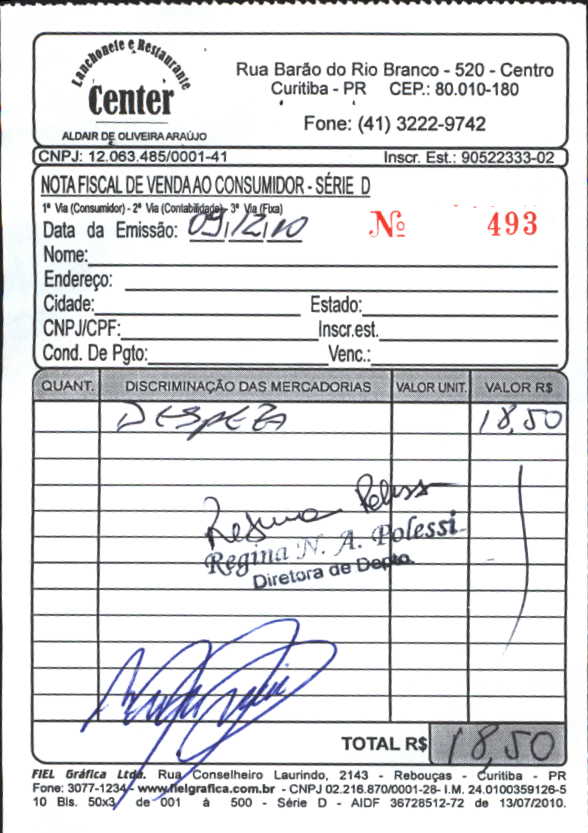 Lanchonete e Restaurante
Center
ALDAIR DE OLIVEIRA ARAÚJO
Rua Barão do Rio Branco - 520 - Centro
Curitiba - PR CEP.: 80.010-180
Fone: (41) 3222-9742
CNPJ: 12.063.485/0001-41 Inscr. Est.: 90522333-02
NOTA FISCAL DE VENDA AO CONSUMIDOR - SÉRIE D
1ª Via (Consumidor) - 2ª Via (Contabilidade) - 3ª Via (Fixa)
Data da Emissão: 09/12/10 Nº 493
Nome:
Endereço:
Cidade: Estado:
CNPJ/CPF: Inscr.est.
Cond. De Pgto: Venc.:
QUANT. DISCRIMINAÇÃO DAS MERCADORIAS VALOR UNIT. VALOR R$
DESPEZA 18,50
Regina Polessi
Regina N. A. Polessi
Diretora de Depto.
TOTAL R$ 18,50
FIEL Gráfica Ltda. Rua Conselheiro Laurindo, 2143 - Rebouças - Curitiba - PR
Fone: 3077-1234 - www.fielgrafica.com.br - CNPJ 02.216.870/0001-28 - I.M. 24.0100359126-5
10 Bls. 50x3 de 001 à 500 - Série D - AIDF 36728512-72 de 13/07/2010.